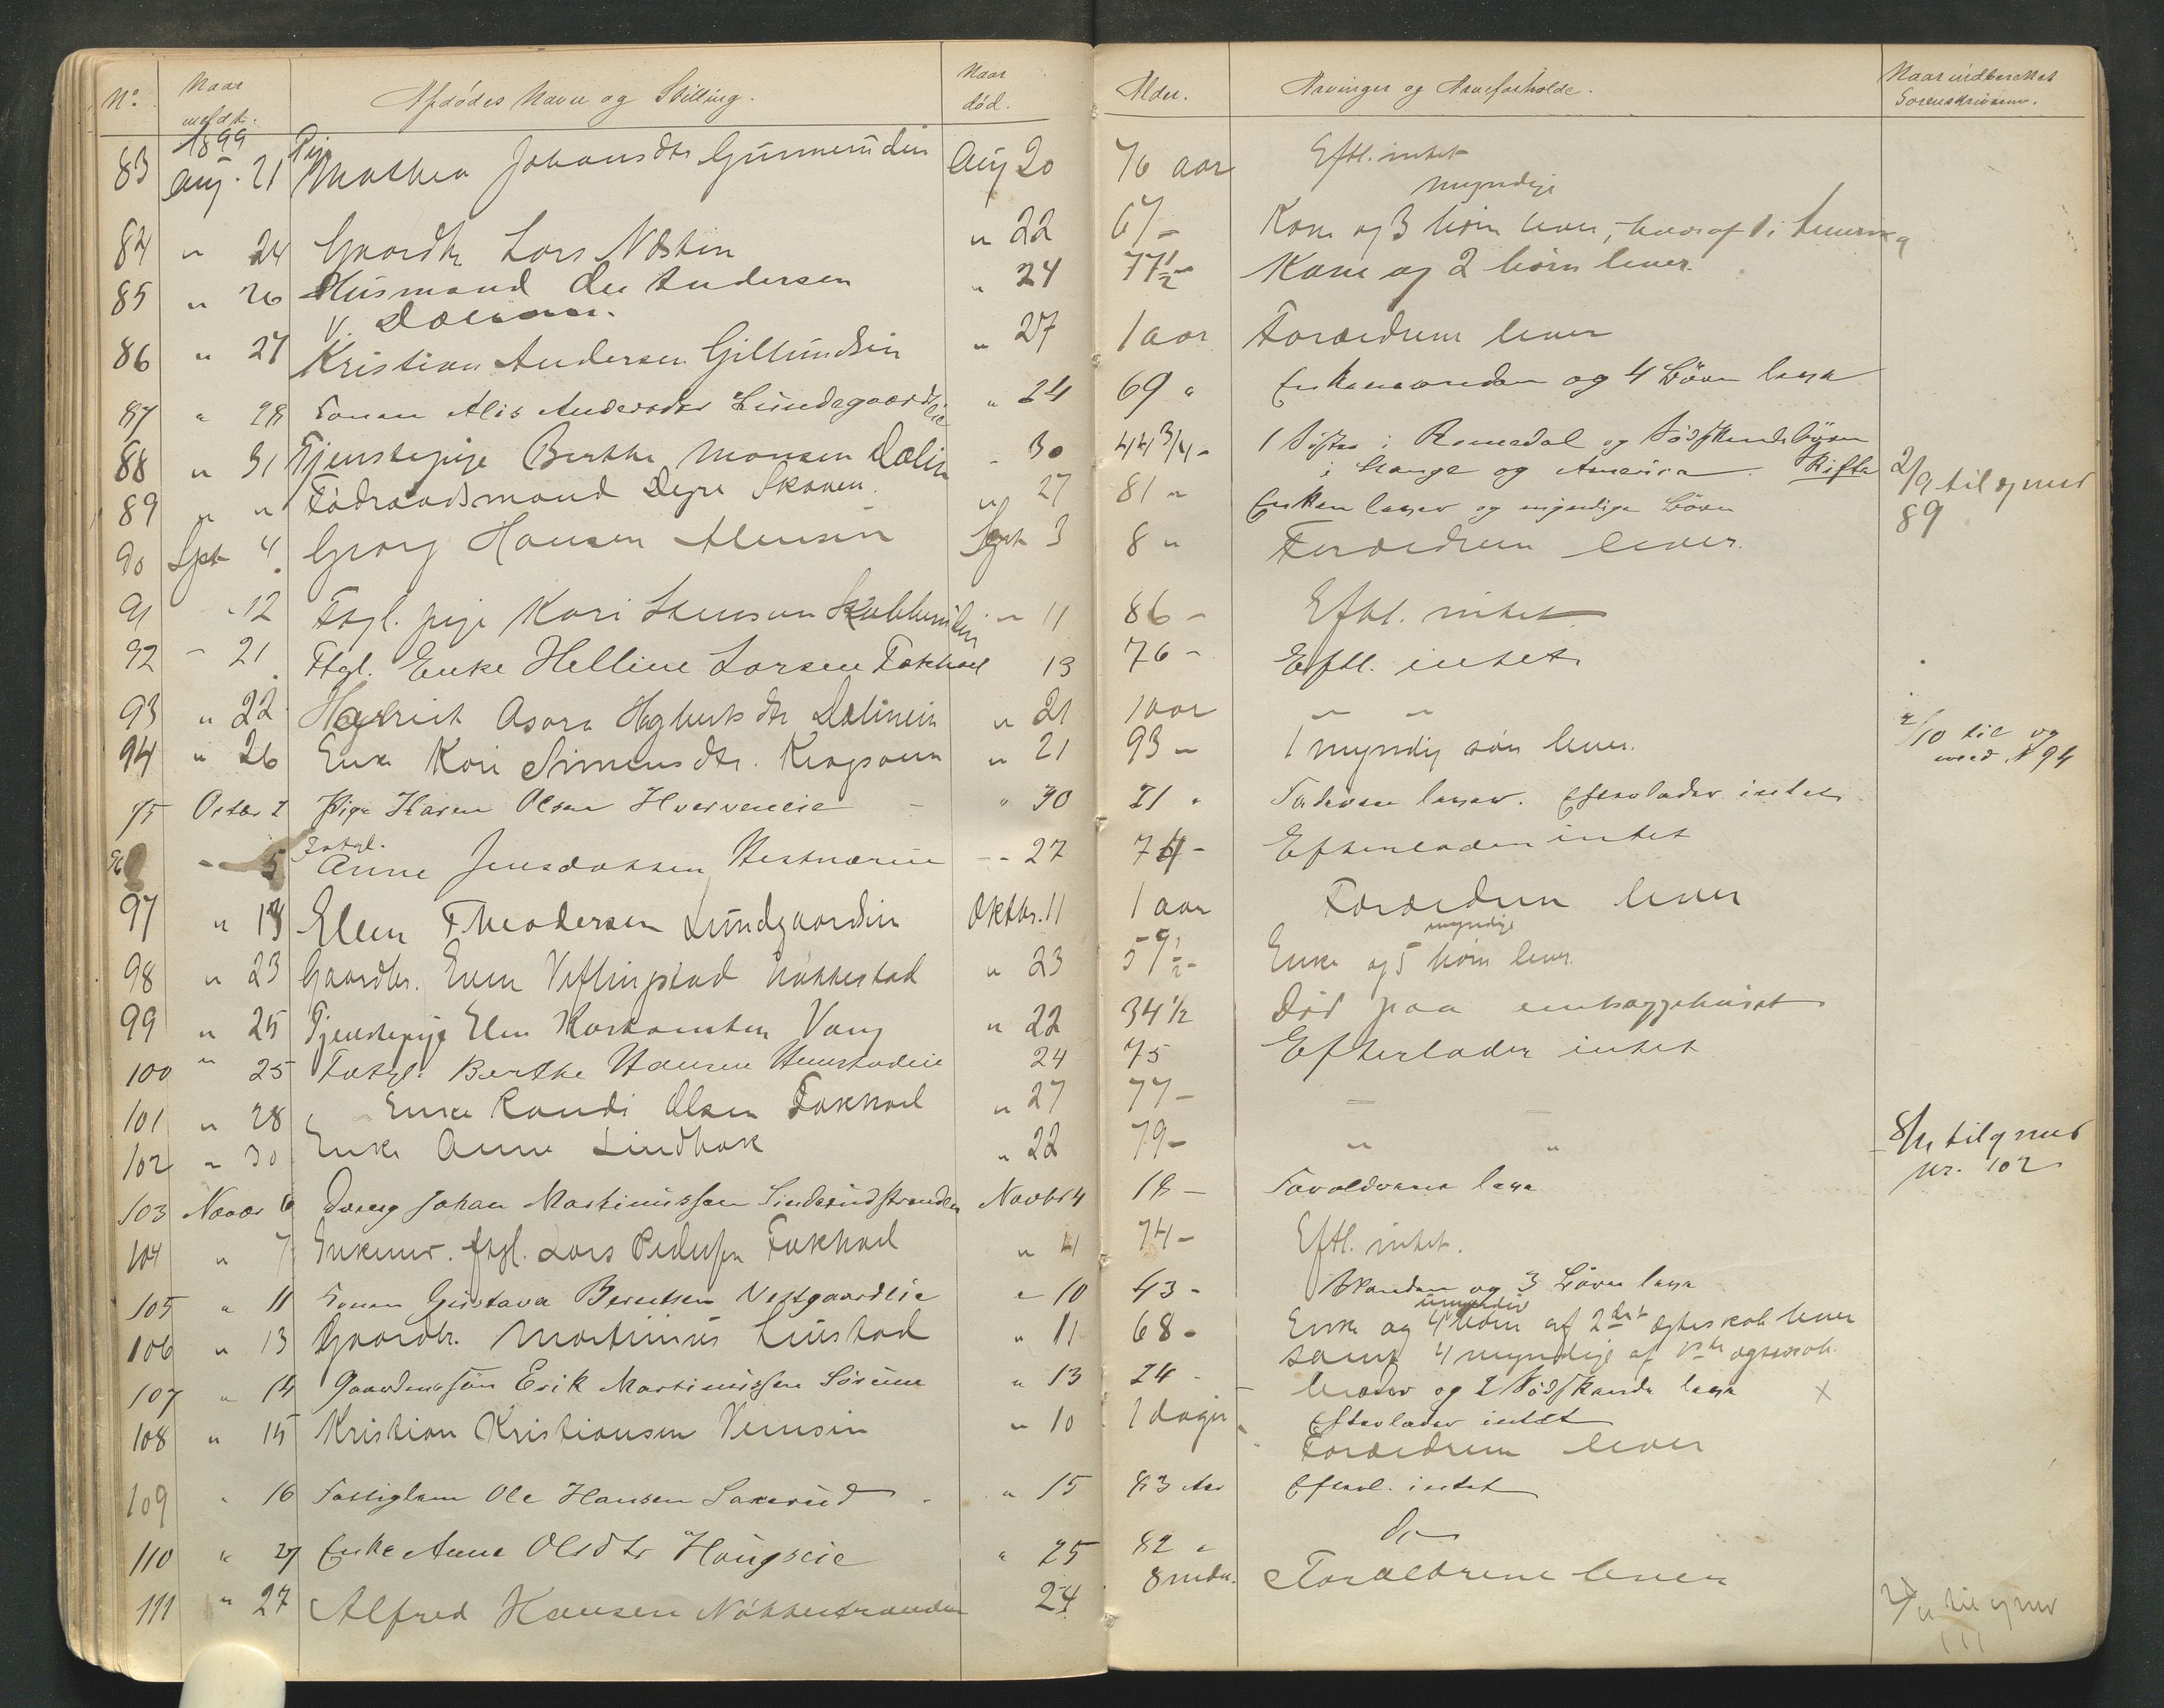 No. Naar meldt. Afdödes Navn og Stilling. Naar död. Alder. Arvinger og Arveforholde. Naar indberettet Sorenskriveren.
1899
83 Aug. 21 Pige Mathea Johansdtr Gunnerudeie Aug 20 76 aar Eftl. intet
myndige
84 " 24 Gaardbr Lars Næsten " 22 67 - Kone og 3 börn lever, hvoraf 1 i Amerika
85 " 26 Husmand Ole Andersen " 24 77 1/2 - Kone og 2 börn lever.
v.
86 " 27 Kristian Andersen Gillundeie " 27 1 aar Forældrene lever
87 " 28 Konen Alis Andersdtr Lundgaardseie " 24 69 " Enkemanden og 4 Börn leva
88 " 31 Tjenestepige Berthe Monsen Dælin - 30 44 3/4 - 1 Söster i Romedal og Södskendebörn
i Stange og America. Skifte 2/9 til og med
89 " " Föderaadsmand Skaven. " 27 81 " Enken lever og myndige Börn 89
90 Sept 4. Georg Hansen Sept 3 8 " Forældrene lever.
91 " 12 Ftgl. pige Kari Stenson " 11 86 - Eftl. intet
92 " 21. Ftgl. Enke Helline Larsen Fækhoel 13 76 - Eftl. intet
93 " 22 Asora Hagbartsdtr " 21 1 aar " "
94 " 26 Enke Kari Simensdtr. " 21 93 - 1 myndig sön lever. 2/10 til og med N 94
95 Octbr 2 Pige Karen Olsen " 30 21 " Faderen lever. Efterlader intet
96 " 5 Fatgl. Anne Jensdatter -- 27 74 - Efterlader intet
97 " 13 Ellen Theodorsen Lundgaardeie Oktbr. 11 1 aar Forældren lever
myndige
98 " 23 Gaardbr. Even Veflingstad Nökkestad " 23 59 1/2 - Enke og 5 börn lever.
99 " 25 Tjenestepige Elen Vang " 22 34 1/2 Död paa
100 " 25 Fatgl. Berthe Hansen 24 75 Efterlader intet
101 " 28 " Enke Randi Olsen Fækhoel " 27 77 - " "
102 " 30 Enke Anne Lindbak " 22 79 - " " 8/11 til og med nr. 102
103 Novbr 6 Dreng Johan Martinussen Sinderudstranden Novbr 4 18 - Forældrene leva
104 " 7 Enkem. ftgl. Lars Pedersen Fækhoel " 4 74 - Eftl. intet.
105 " 11 Konen Gustava Berntsen Vestgaardeie " 10 43 - Manden og 3 Börn leva
umyndig
106 " 13 Gaardbr. Martinus " 11 68 - Enke og 4 börn af 2det ægteskab lever
samt 4 myndige af 1ste ægteskab.
107 " 14 Gaardmandssön Erik Martinussen " 13 24 - Moder og 2 Södskende leva X
Efterlader intet
108 " 15 Kristian Kristiansen " 10 1 dager Forældrene lever
109 " 16 Fattiglem Ole Hansen " 15 83 Aar Efterl. intet
110 " 27 Enke Anne Olsdtr Haugseie " 25 82 " do
111 " 27 Alfred Hansen Nökkestranden 24 8 mdr. Forældrene lever til og med 111